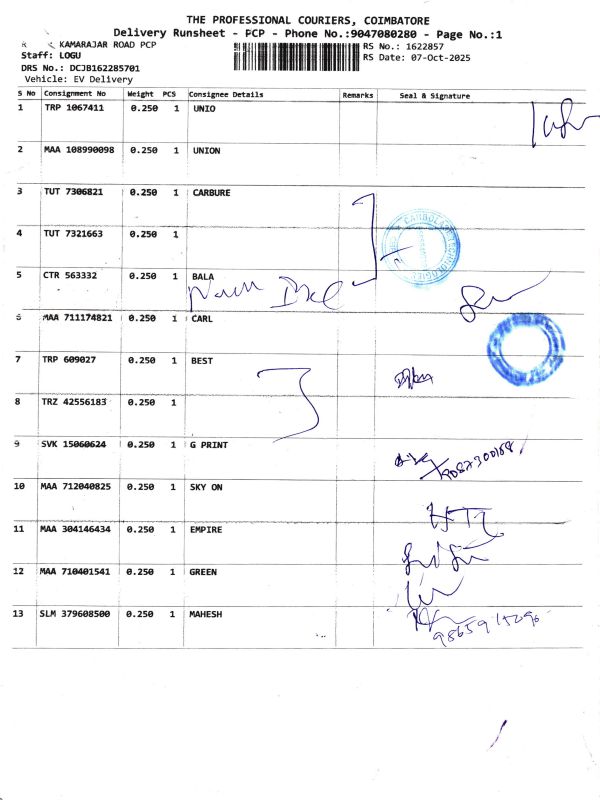 THE PROFESSIONAL COURIERS, COIMBATORE
Delivery Runsheet - PCP - Phone No.:9047080280 - Page No.:1
KAMARAJAR ROAD PCP
RS No.: 1622857
Staff: LOGU
RS Date: 07-Oct-2025
DRS No.: DCJB162285701
Vehicle: EV Delivery
S No Consignment No Weight PCS Consignee Details Remarks Seal & Signature
1 TRP 1067411 0.250 1 UNIO
2 MAA 108990098 0.250 1 UNION
3 TUT 7306821 0.250 1 CARBURE
4 TUT 7321663 0.250 1
5 CTR 563332 0.250 1 BALA
6 MAA 711174821 0.250 1 CARL
7 TRP 609027 0.250 1 BEST
8 TRZ 42556183 0.250 1
9 SVK 15060624 0.250 1 G PRINT
10 MAA 712040825 0.250 1 SKY ON
11 MAA 304146434 0.250 1 EMPIRE
12 MAA 710401541 0.250 1 GREEN
13 SLM 379608500 0.250 1 MAHESH